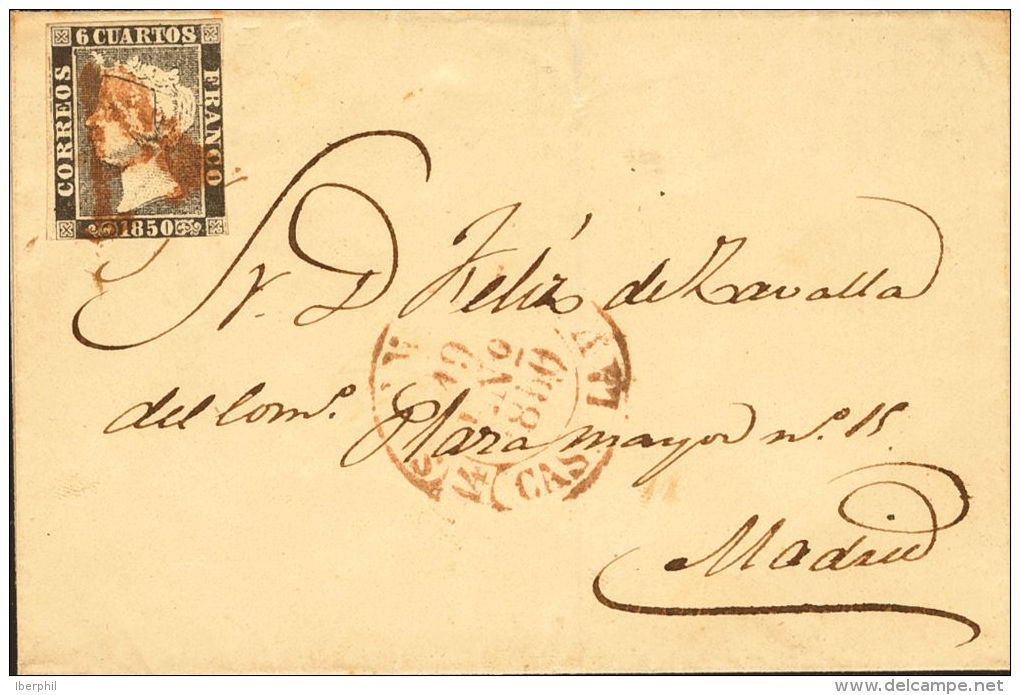 6 CUARTOS
CORREOS
FRANCO
1850
Sr. D. Feliz de Zavalla
del Como. Plaza mayor no. 15.
Madrid
19
1850
CAS
Iberphil
delcampe.net